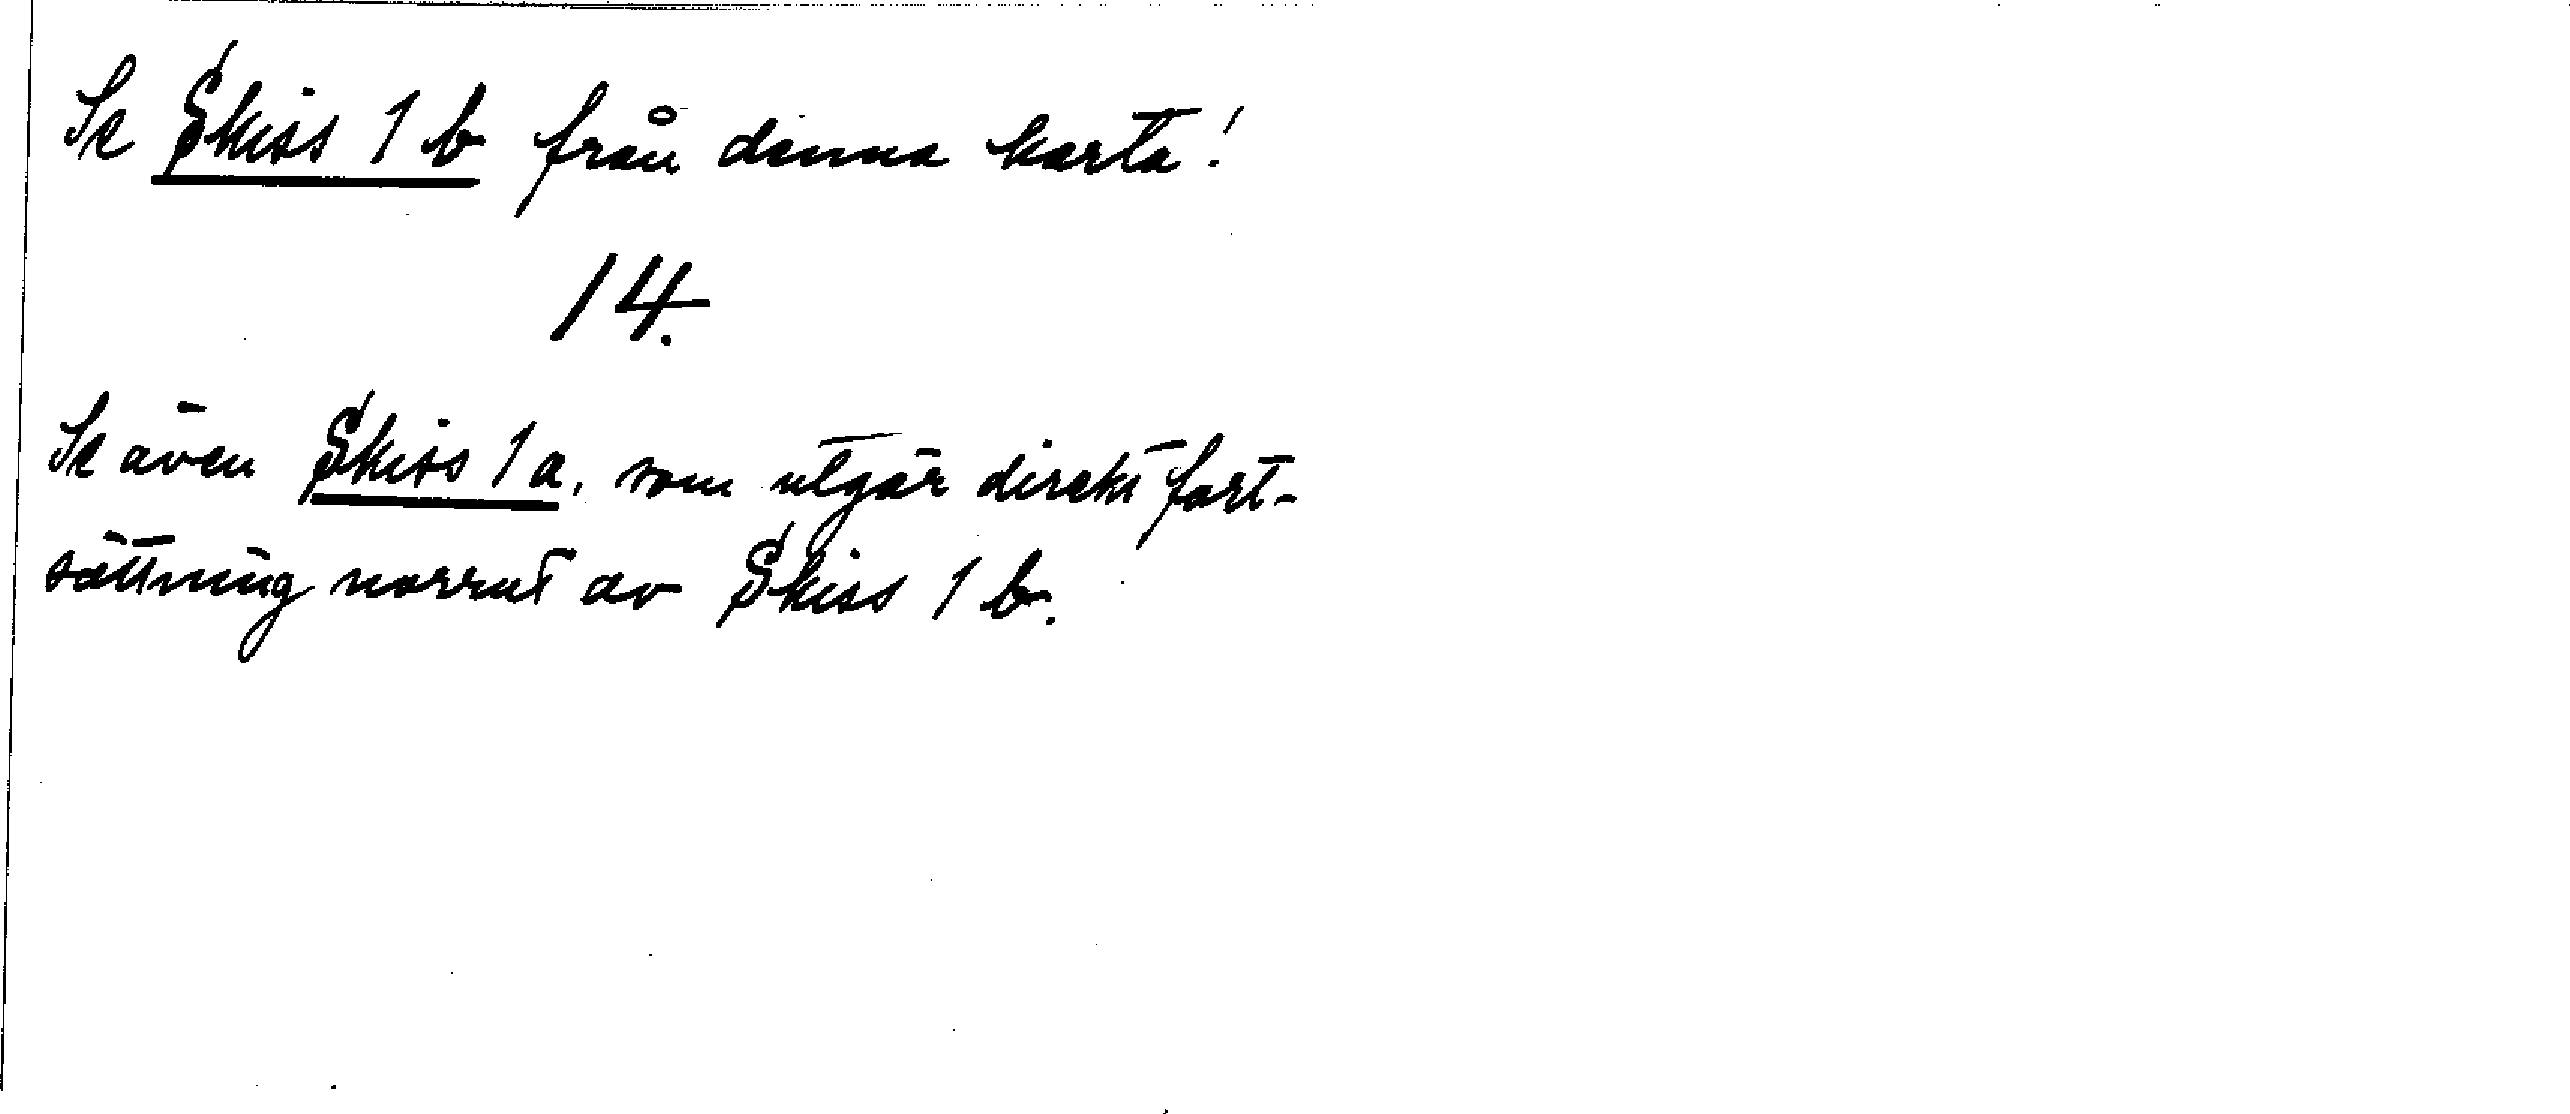 Se Skiss 1 b från denna karta!
14.
Se även Skiss 1 a, som utgör direkt fort-
sättning norrut av Skiss 1 b.